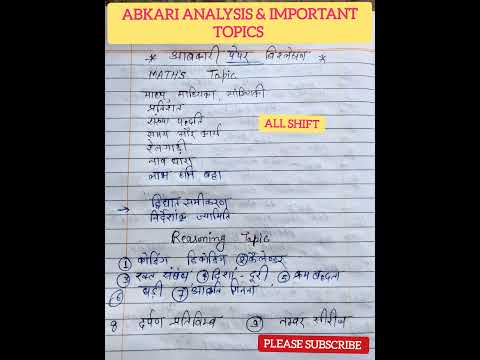 ABKARI ANALYSIS & IMPORTANT
TOPICS
* आबकारी पेपर विश्लेषण *
MATHS Topic
माध्य, माध्यिका,
प्रतिशत
संख्या पद्धति
समय और कार्य
रेलगाड़ी
ALL SHIFT
नाव धारा
लाभ हानि बट्टा
→ द्विघात समीकरण
निर्देशांक ज्यामिति
Reasoning Topic
① कोडिंग डिकोडिंग ② कैलेण्डर
③ रक्त संबंध ④ दिशा - दूरी ⑤ क्रमबद्धता
⑥ घड़ी ⑦ आकृति गिनना
8 दर्पण प्रतिबिम्ब ⑨ नम्बर सीरीज
PLEASE SUBSCRIBE